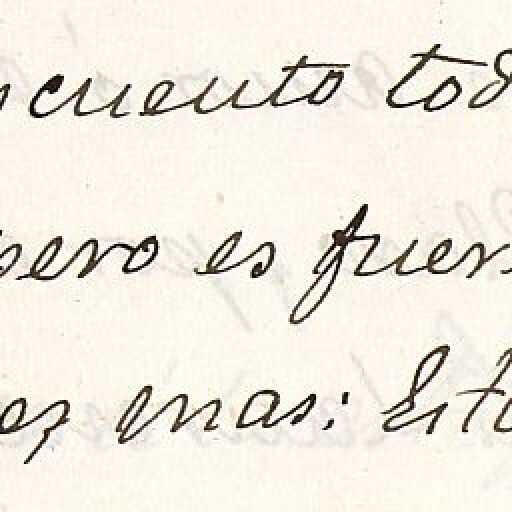 cuento tod
pero es fuer
ez mas: Esto